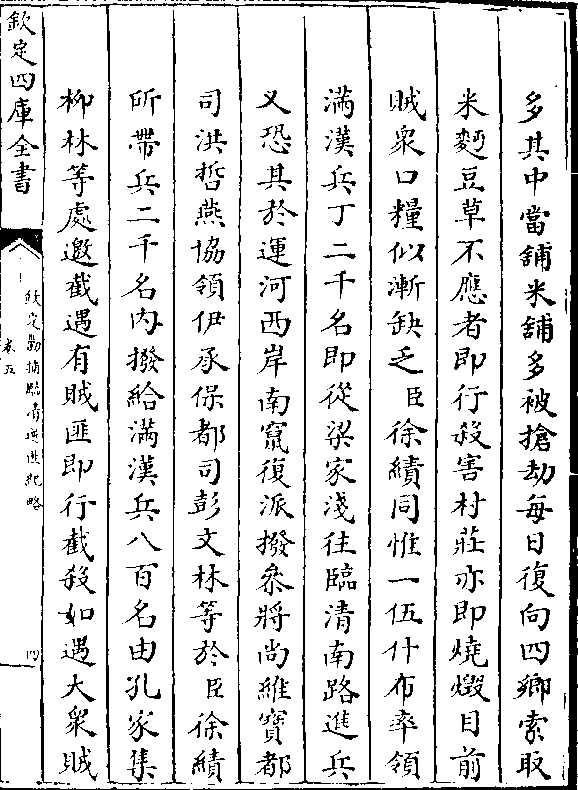 多其中當舖米舖多被搶劫每日復向四鄉索取
米麪豆草不應者即行殺害村莊亦即燒燬目前
賊衆口糧似漸缺乏臣徐績同惟一伍什布率領
滿漢兵丁二千名即從梁家淺往臨清南路進兵
又恐其於運河西岸南竄復派撥叅將尚維寶都
司洪哲燕協領伊承保都司彭文林等於臣徐績
所帶兵二千名内撥給滿漢兵八百名由孔家集
柳林等處邀截遇有賊匪即行截殺如遇大衆賊
欽定四庫全書
欽定勦捕臨清逆匪紀略
卷五
四